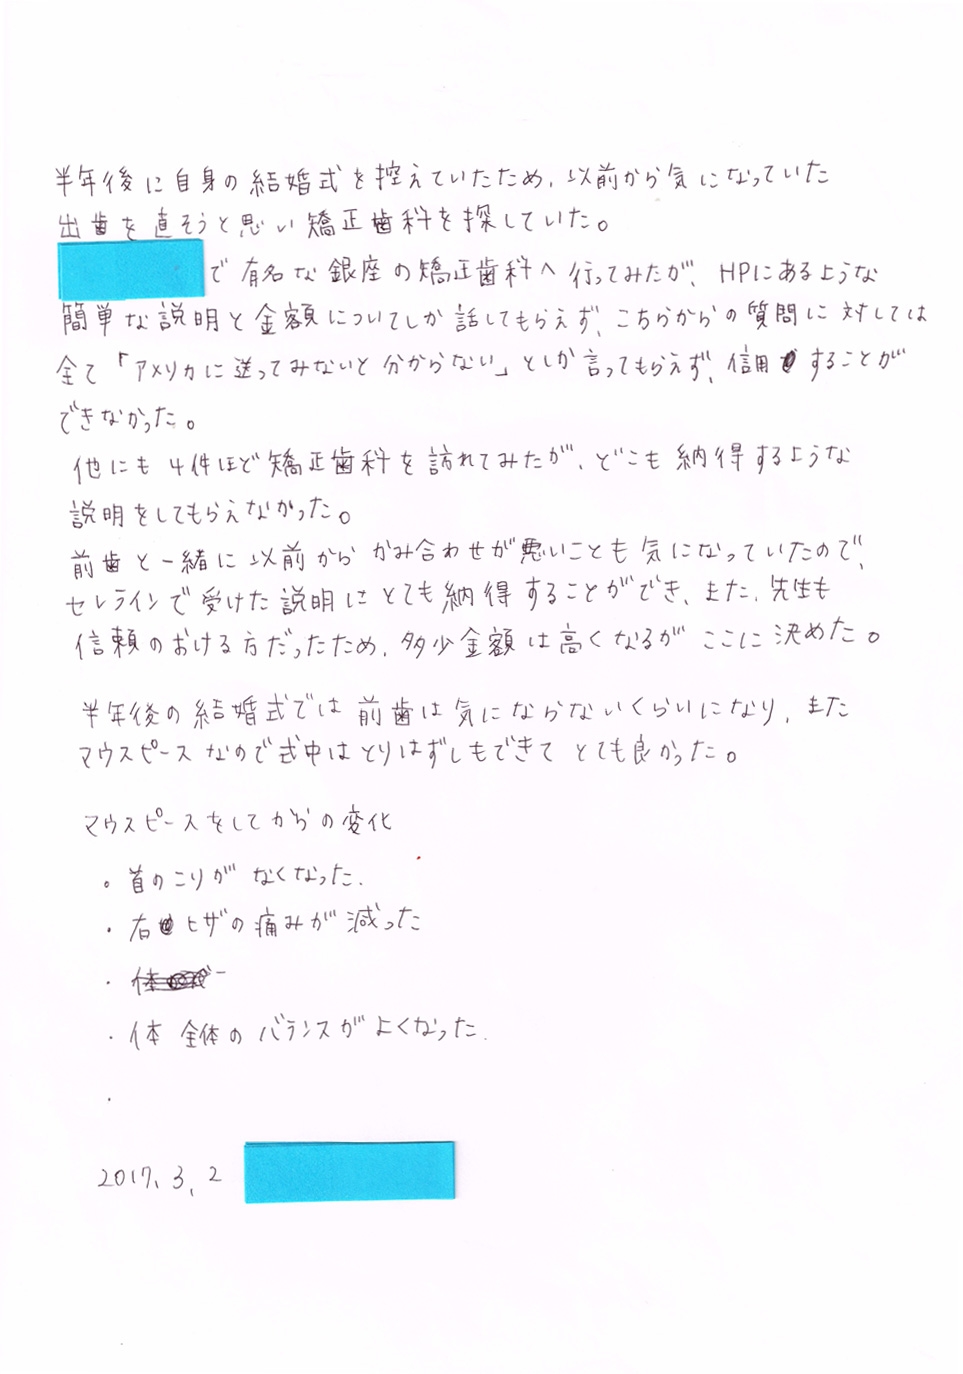 半年後に自身の結婚式を控えていたため、以前から気になっていた
出歯を直そうと思い矯正歯科を探していた。
で有名な銀座の矯正歯科へ行ってみたが、HPにあるような
簡単な説明と金額についてしか話してもらえず、こちらからの質問に対しては
全て「アメリカに送ってみないと分からない」としか言ってもらえず、信用することが
できなかった。
他にも4件ほど矯正歯科を訪れてみたが、どこも納得するような
説明をしてもらえなかった。
前歯と一緒に以前からかみ合わせが悪いことも気になっていたので、
セレラインで受けた説明にとても納得することができ、また、先生も
信頼のおける方だったため、多少金額は高くなるがここに決めた。
半年後の結婚式では前歯は気にならないくらいになり、また
マウスピースなので式中はとりはずしもできてとても良かった。
マウスピースをしてからの変化
・首のこりがなくなった.
・右ヒザの痛みが減った
・
・体全体のバランスがよくなった.
・
2017、3、2